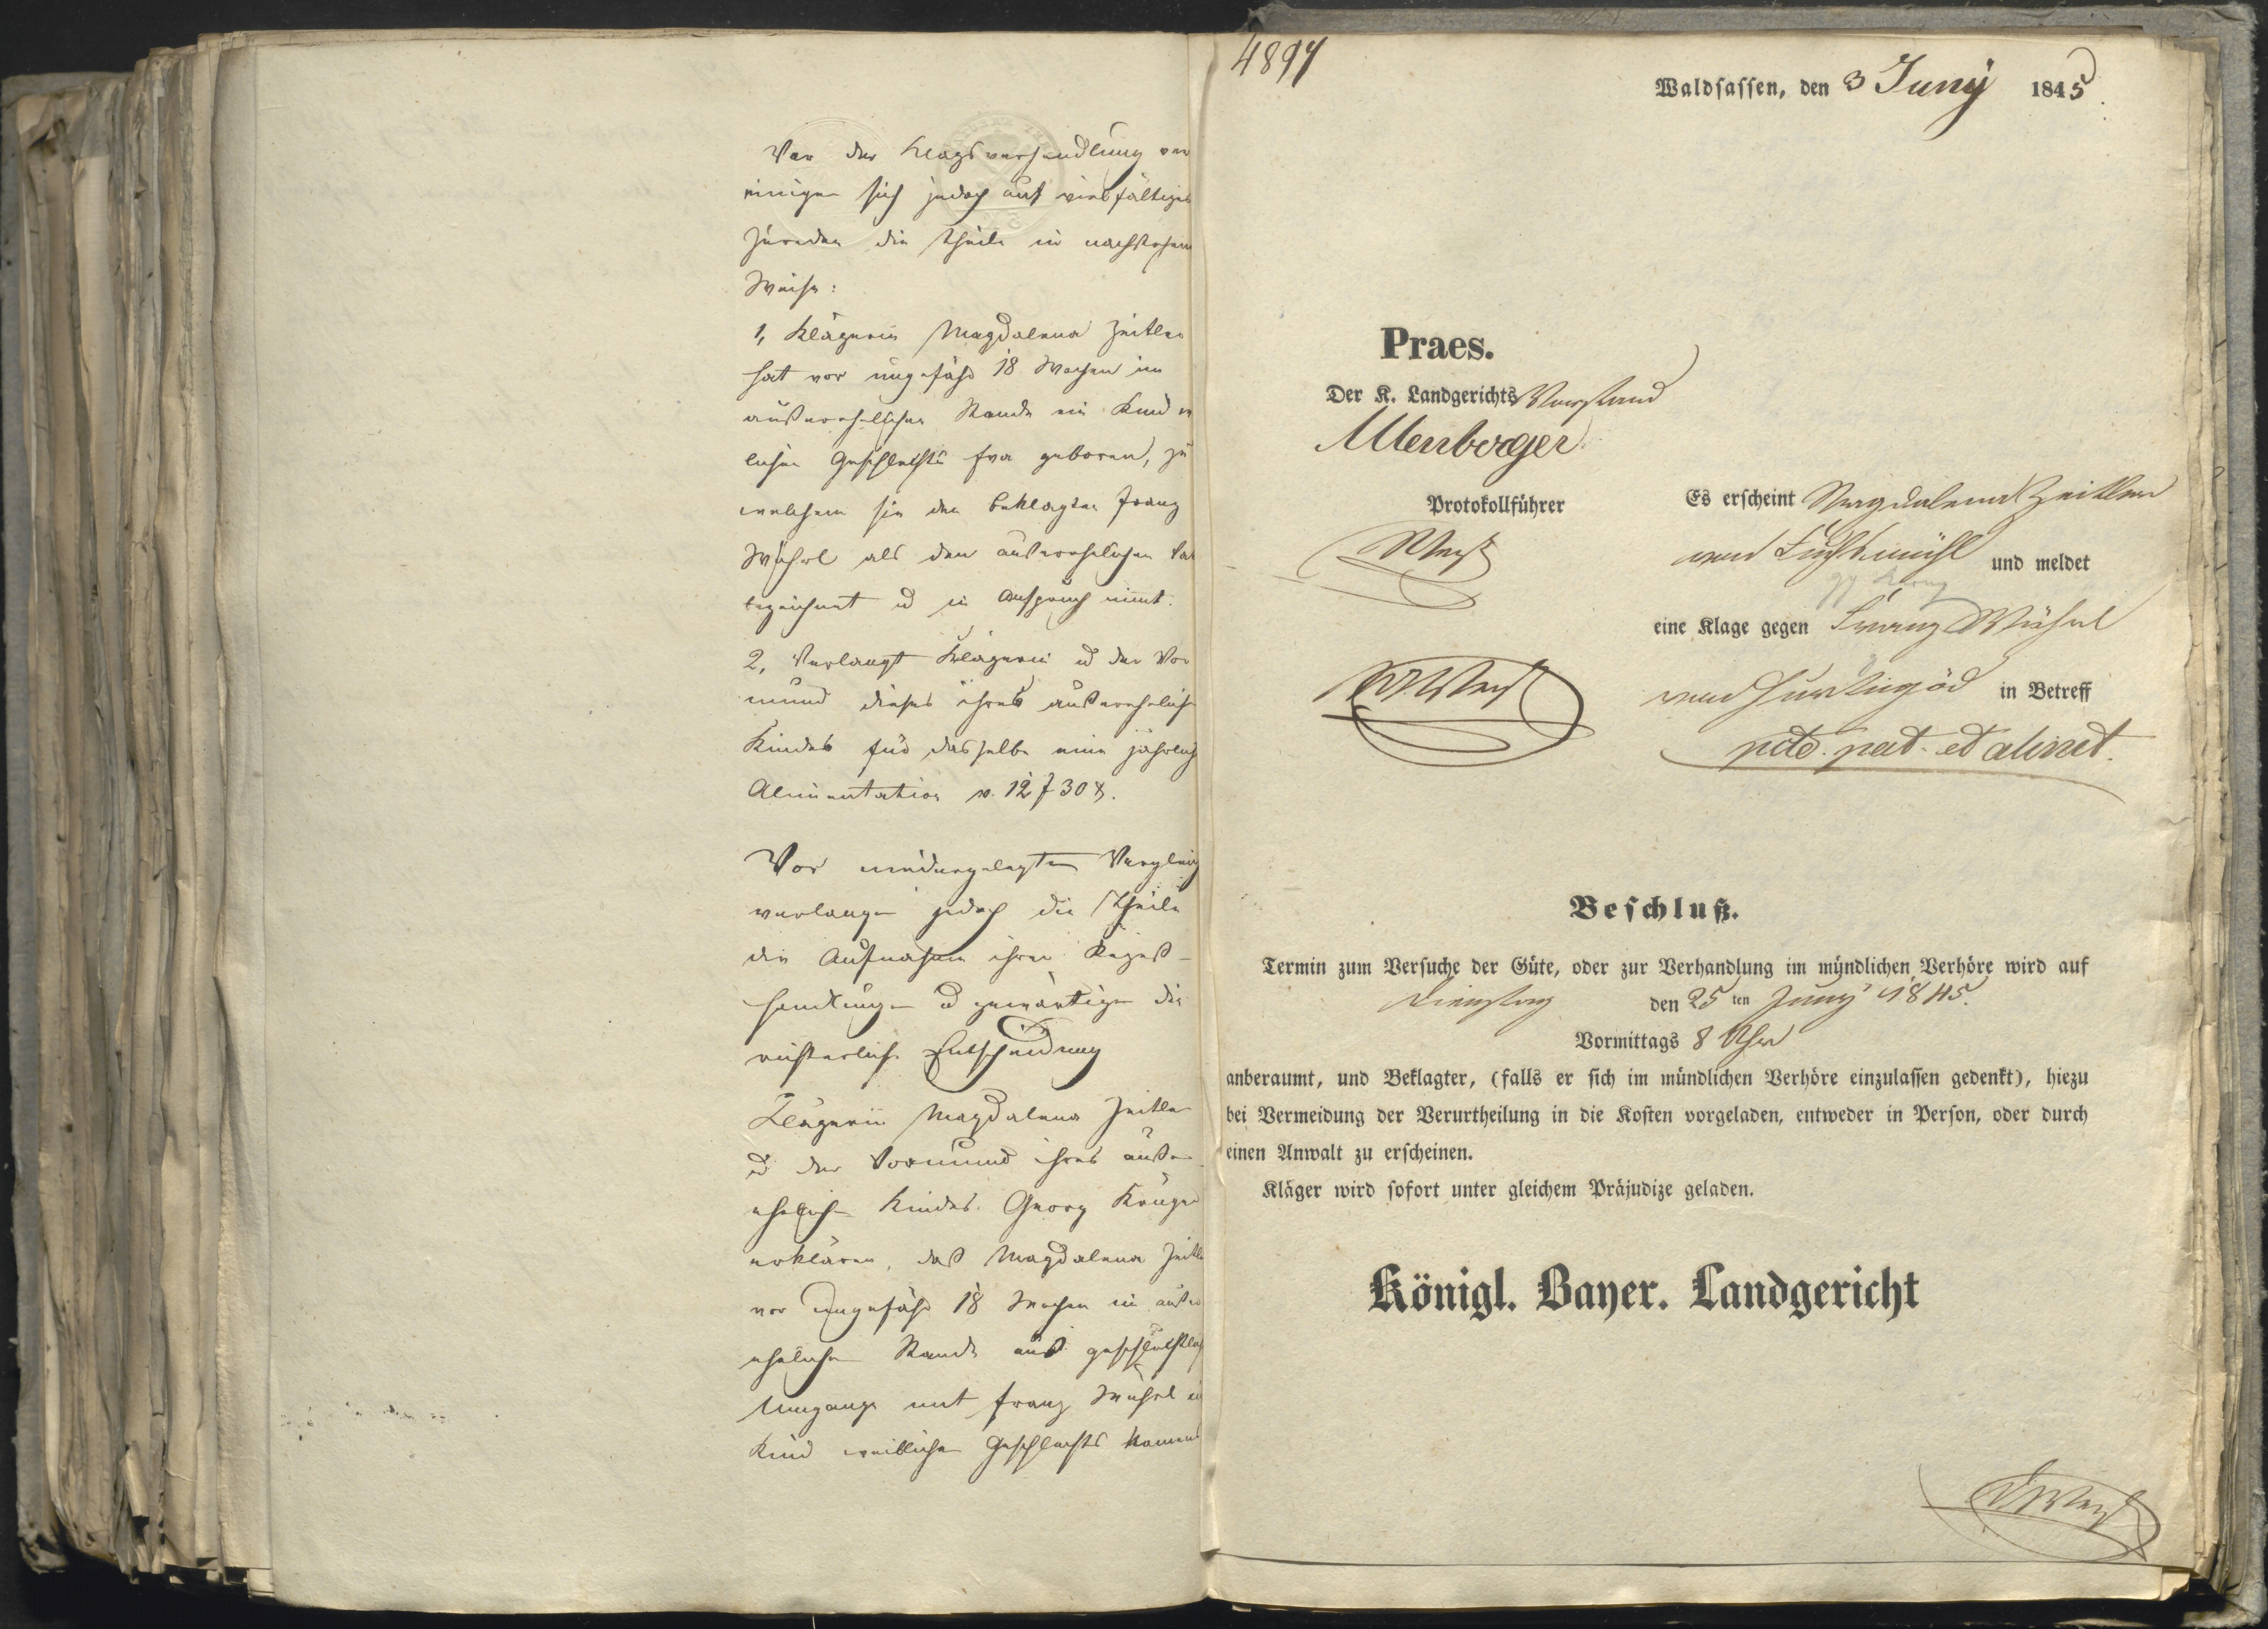 Vor der Klagsverhandlung ver
einigen sich jedoch auf vielfältiges
Zureden die Theile in nachstehen
Weise:
1, Klägerin Magdalena Zeitler
hat vor ungefähr 18 Wochen im
außerehelichen Stande ein Kind
lichen Geschlechts geboren, zu
welchem sie den Beklagten Franz
Wührl als den außerehelichen Va
bezeichnet u in Anspruch nimt.
2, Verlangt Klägerin u der Vor
mund dieses ihres außerehelich
Kindes für dasselbe eine jährlich
Alimentation v. 12 f 30 x.
Vor niedergelegten Vergleich
verlangen jedoch die Theile
die Aufnahme ihrer Rezeß-
handlungen u gewärtigen die
richterliche Entscheidung
Klägerin Magdalena Zeitler
u der Vormund ihres außer
ehelichen Kindes Georg Krüger
erklären, daß Magdalena Zeitle
vor ungefähr 18 Wochen im außer
ehelichen Stande aus geschlechtlich
Umgange mit Franz Wührl ei
Kind weiblichen Geschlechts Namens
4897
Waldsassen, den 3 Juny 1845.
Praes.
Der K. Landgerichts Vorstand
Altenberger
Protokollführer
Es erscheint Magdalena Zeitler
von Fuchsmühl und meldet
eine Klage gegen Franz Wührl
von in Betreff
pcto. pat. et aliment.
Beschluß.
Termin zum Versuche der Güte, oder zur Verhandlung im mündlichen Verhöre wird auf
Dienstag den 25 ten Juny 1845.
Vormittags 8 Uhr
anberaumt, und Beklagter, (falls er sich im mündlichen Verhöre einzulassen gedenkt), hiezu
bei Vermeidung der Verurtheilung in die Kosten vorgeladen, entweder in Person, oder durch
einen Anwalt zu erscheinen.
Kläger wird sofort unter gleichem Präjudize geladen.
Königl. Bayer. Landgericht